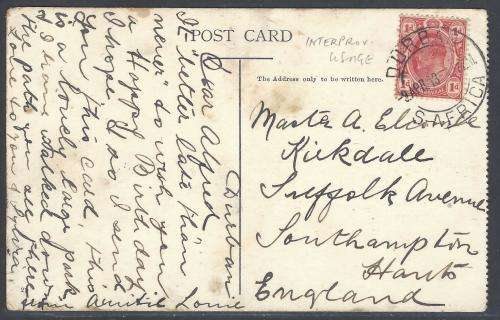 POST CARD
INTERPROV.
USAGE
The Address only to be written here.
S. AFRICA
1d
1d
Durban
Dear Alfred
Is "better late than
never" to wish you
a Happy Birthday
I hope so I send
you this card, this
is a lonely large park
I have walked down
the path you see there
Love to you &
from Auntie Louie
Master A.
Kirkdale
Suffolk Avenue
Southampton
Hants
England